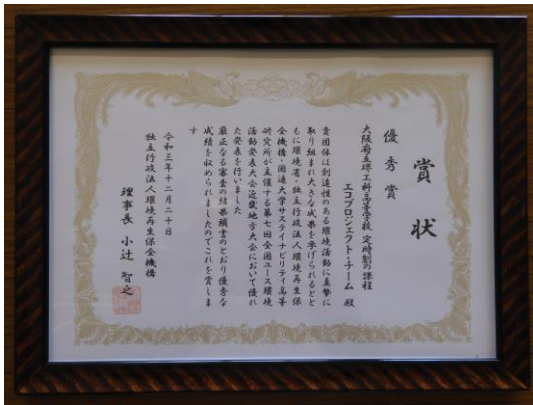 賞状
優秀賞
大阪府立堺工科高等学校 定時制の課程
エコプロジェクト・チーム 殿
貴団体は創造性のある環境活動に真摯に
取り組まれ大きな成果を挙げられるとと
もに環境省・独立行政法人環境再生保
全機構・国連大学サステイナビリティ高等
研究所が主催する第七回全国ユース環境
活動発表大会近畿地方大会において優れ
た発表を行いました
厳正なる審査の結果頭書のとおり優秀な
成績を収められましたのでこれを賞しま
す
令和三年十二月二十日
独立行政法人環境再生保全機構
理事長 小辻 智之